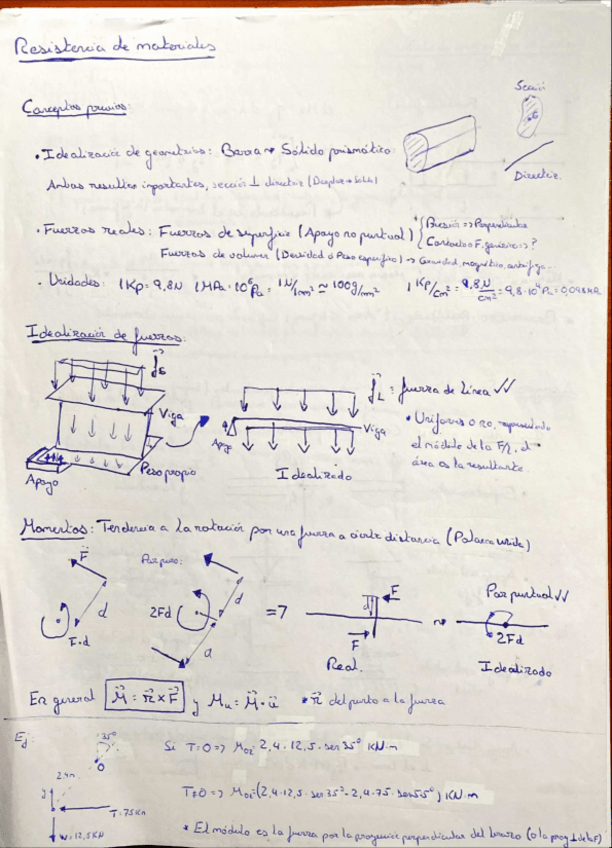 Resistencia de materiales
Conceptos previos:
Sección
G
• Idealización de geometrías: Barra → Sólido prismático:
Directriz
Ambas resultan importantes, sección ⊥ directriz
• Fuerzas reales: Fuerzas de superficie (Apoyo no puntual) { Presión => Perpendicular
Contacto o F. genérica => ?
Fuerzas de volumen (Densidad o Peso específico) → Gravedad, magnético, centrífuga.
• Unidades: 1Kp = 9,8N 1MPa = 10⁶Pa = 1N/mm² ≃ 100g/mm² 1 Kp/cm² = 9,8N/cm² = 9,8·10⁴Pa = 0,098MPa
Idealización de fuerzas:
fs
Viga
Peso propio
Apoyo
fL = fuerza de línea ✓✓
Viga
Apoyo
Idealizado
• Uniformes o no, representando
el módulo de la F/L, el
área es la resultante.
Momentos: Tendencia a la rotación por una fuerza a cierta distancia (Palanca)
F
d
F·d
Par puro:
2Fd
d
d
=>
F
d
F
Real.
Par puntual ✓✓
2Fd
Idealizado
En general M = r x F y Mu = M · u * r del punto a la fuerza
Ej:
35º
O
2,4m
T=75KN
W=12,5KN
Si T=0 => Moz = 2,4·12,5·sen35º KN·m
T≠0 => Moz = (2,4·12,5·sen35º - 2,4·75·sen55º) KN·m
* El módulo es la fuerza por la proyección perpendicular del brazo (o la proy ⊥ de la F)